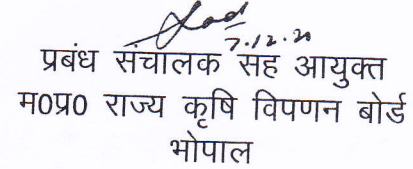 7.12.20
प्रबंध संचालक सह आयुक्त
म0प्र0 राज्य कृषि विपणन बोर्ड
भोपाल